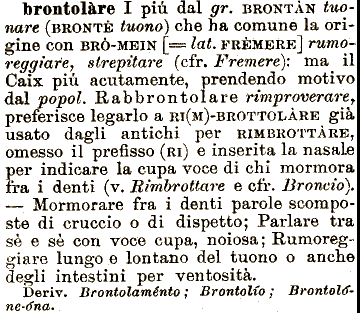 brontolàre I più dal gr. BRONTÀN tuo-
nare (BRONTÈ tuono) che ha comune la ori-
gine con BRÒ-MEIN [= lat. FRÈMERE] rumo-
reggiare, strepitare (cfr. Fremere): ma il
Caix più acutamente, prendendo motivo
dal popol. Rabbrontolare rimproverare,
preferisce legarlo a RI(M)-BROTTOLÀRE già
usato dagli antichi per RIMBROTTÀRE,
omesso il prefisso (RI) e inserita la nasale
per indicare la cupa voce di chi mormora
fra i denti (v. Rimbrottare e cfr. Broncio).
— Mormorare fra i denti parole scompo-
ste di cruccio o di dispetto; Parlare tra
sè e sè con voce cupa, noiosa; Rumoreg-
giare lungo e lontano del tuono o anche
degli intestini per ventosità.
Deriv. Brontolaménto; Brontolío; Brontoló-
ne-óna.